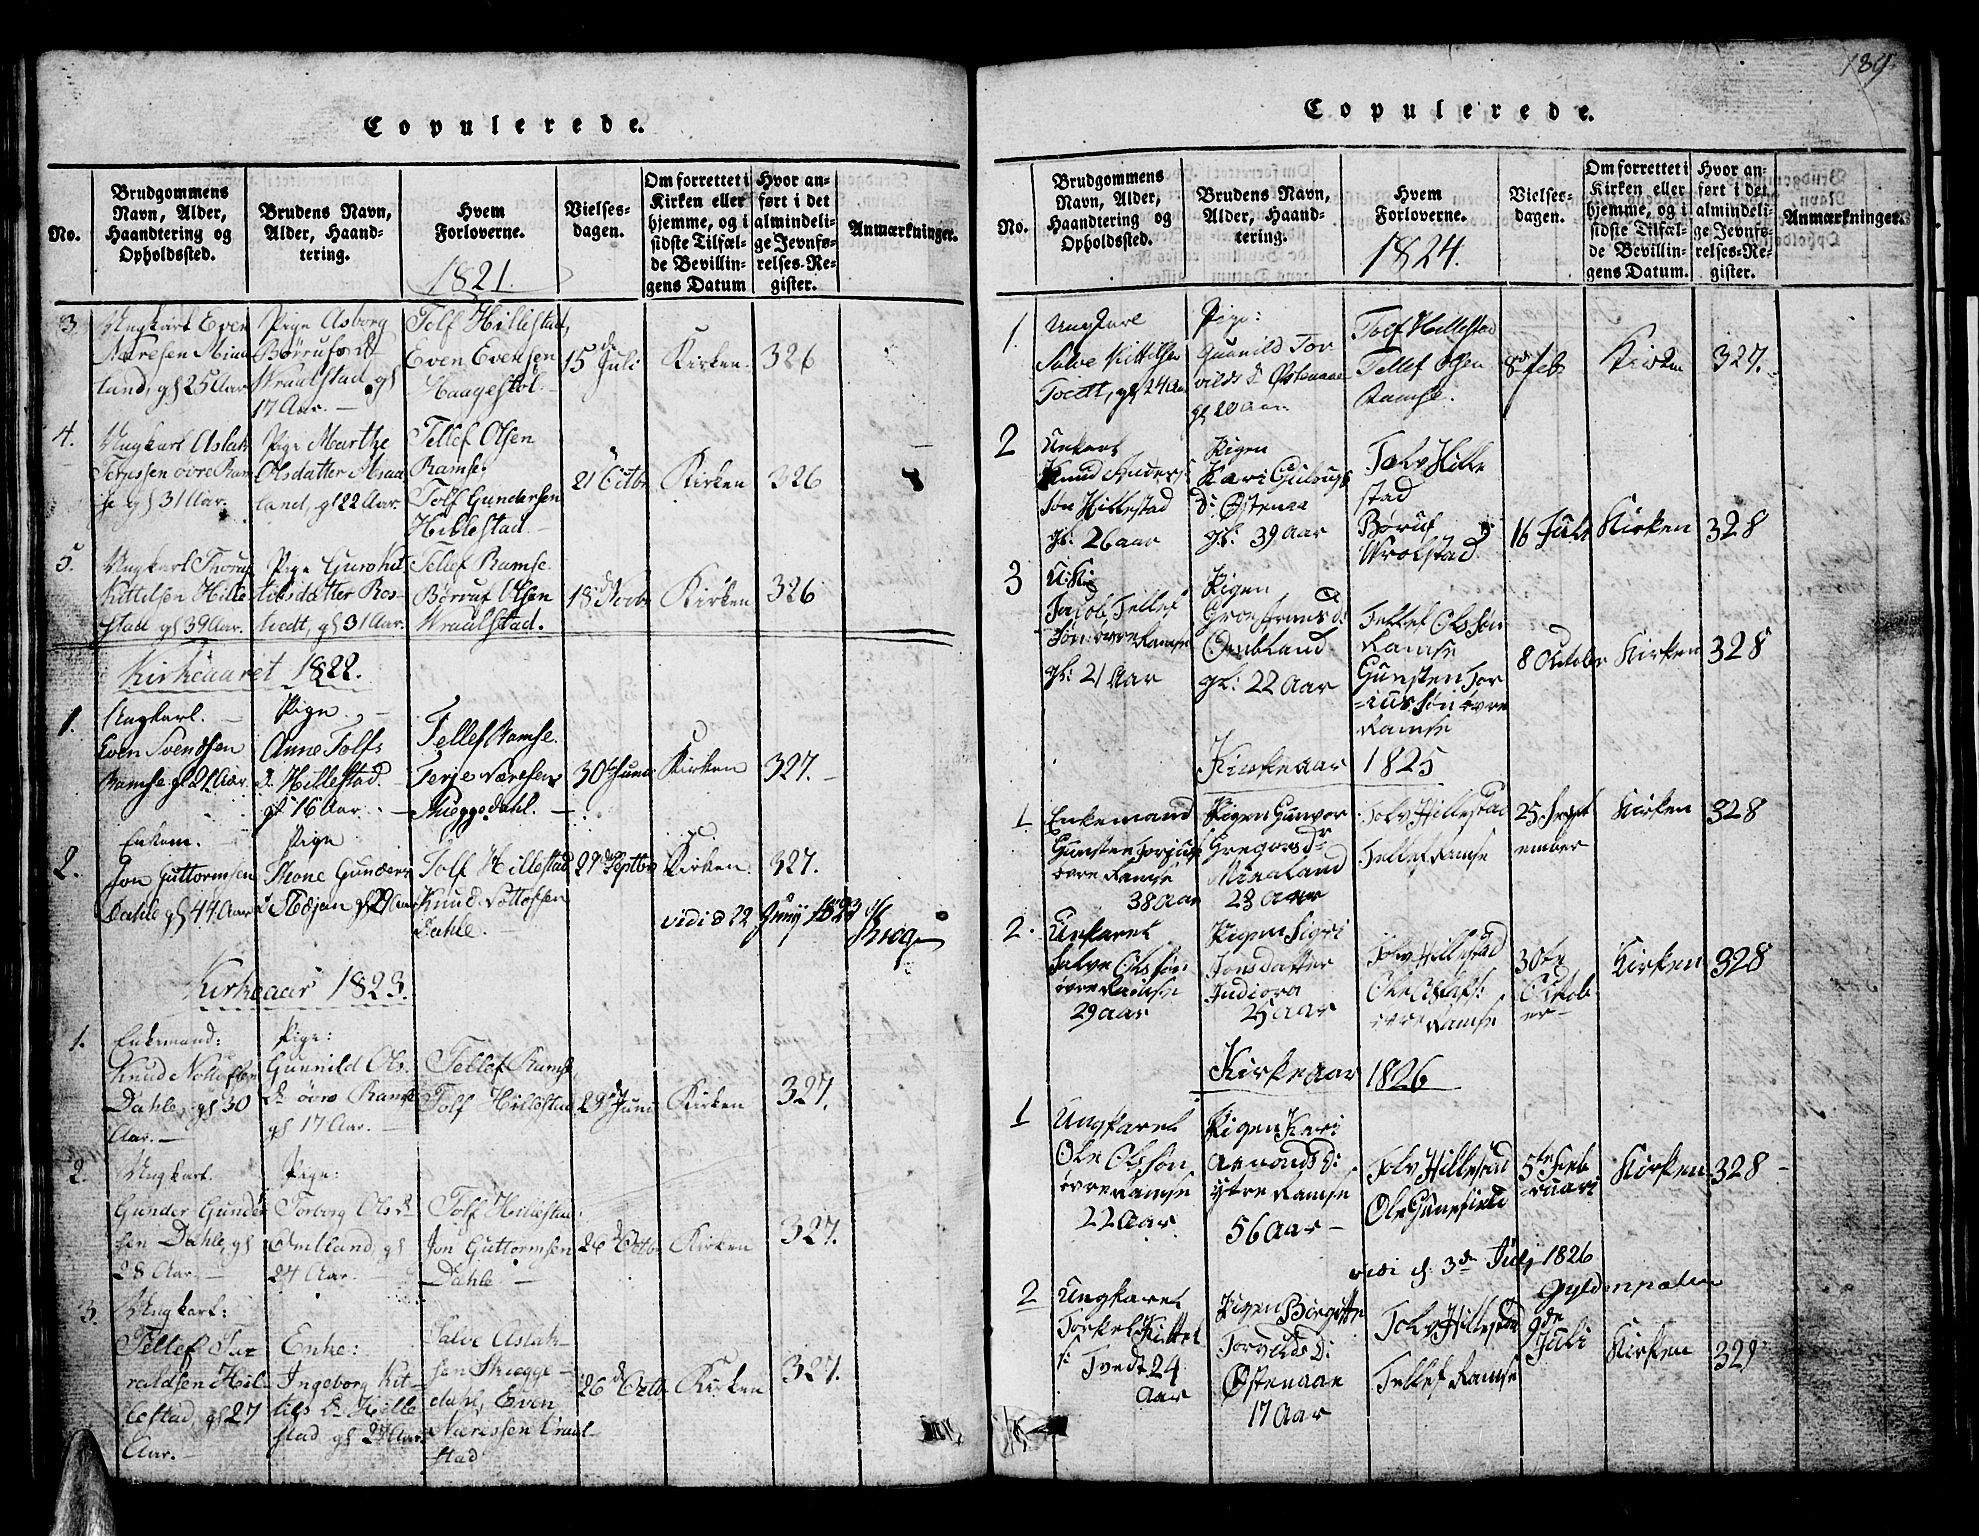 Copulerede.
No.
Brudgommens Navn, Alder, Haandtering og Opholdssted.
Brudens Navn, Alder, Haandtering.
Hvem Forloverne.
1821.
Vielses-dagen.
Om forrettet i Kirken eller hjemme, og i sidste Tilfælde Bevillingens Datum
Hvor anført i det almindelige Jevnførelses-Register.
Anmærkninger.
3
Ungkarl Even
land, gl 25 Aar
Pige Asborg
17 Aar. —
Tolf Hillestad,
Even Evensen
Haagestöl —
15 de Juli
Kirken.
326
4.
Ungkarl Aslak
se gl 31 Aar.
Pige Marthe
Olsdatter
land, gl 22 Aar.
Tellef Olsen
Ramse.
Tolf Gundersen
Hillestad —
21 Octbr
Kirken
326
5.
Kittilsen Hille
stad gl 39 Aar.
Pige Guro Kit
tilsdatter Ros
gl 31 Aar.
Tellef Ramse.
Børruf Olsen
Wraalstad.
18 de Novbr
Kirken
326
Kirkeaaret 1822.
1.
Ungkarl. —
Even Svendsen
Ramse gl 21 Aar
Pige. —
Anne Tolfs
D. Hillestad.
gl 16 Aar. —
Tellef Ramse.
Terje Næresen
Skieggedahl. —
30 Juni
Kirken
327. —
2.
Enkem.
Jon Guttormsen
Dahle gl 44 Aar
Pige
Tone Gunders
Tolf Hillestad
Knud Nottofsen
Dahle. —
29 Septbr
Kirken.
327.
vidi d 22 Juny 1823
Kirkeaar 1823.
1.
Enkemand:
Knud Nottofsen
Dahle, gl 30
Aar. —
Pige:
Gunnild Ols
D. øvre Ramse
gl 17 Aar. —
Tellef Ramse,
Tolf Hillestad
29 de Juni
Kirken
327.
2.
Ungkarl.
Gunder Gunder
sen Dahle, gl
28 Aar. —
Pige:
Torborg Ols D
Omland, gl
27 Aar. —
Tolf Hillestad.
Jon Guttormsen
Dahle —
26 Octbr
Kirken
327.
3.
Ungkarl:
Tellef Tar
raldsen Hil
lestad, gl 27
Aar. —
Enke:
Ingeborg Kit
tils D. Hille
stad gl 27 Aar.
Salve Aslak
sen Skiegge
dahl, Even
Næressen Vraal
stad
26 Octb.
Kirken
327.
189
Copulerede.
No.
Brudgommens Navn, Alder, Haandtering og Opholdssted.
Brudens Navn, Alder, Haandtering.
Hvem Forloverne.
1824.
Vielses-dagen.
Om forrettet i Kirken eller hjemme, og i sidste Tilfælde Bevillingens Datum.
Hvor anført i det almindelige Jevnførelses-Register.
Anmærkninger.
1.
Ungkarl
Salve Kittilsen
Tvett, gl 24 Aar
Pige:
Gunnild Tor
vilds D. Østenaae
gl 20 Aar.
Tolf Hillestad
Tellef Olsen
Ramse.
8 de Feb
Kirken
327.
2
Knud Anders
søn Hillestad
gl: 26 aar
Pigen
Kari
D: Østenaa
gl: 39 Aar
Tolv Hille
stad
Børuf
Wrolstad
16 Juli
Kirken
328
3
U: K:
Jacob Tellef
søn øvre Ramse
gl: 21 Aar
Pigen
D:
Ombland
gl: 22 Aar
Tellef Olssøn
Ramse
Gunsten Tor
iussøn øvre
Ramse
8 October
Kirken
328
Kirkeaar 1825
1.
Enkemand
Gunsten Torjus
øvre Ramse
38 Aar
Pigen Gunvor
Gregorsd
23 Aar
Tolv Hillestad
Tellef Ramse
25 Sept
ember
Kirken
328
2.
Ungkarl
Salve Olssøn
øvre Ramse
29 aar
Pigen Sigri
Jonsdatter
25 Aar
Tolv Hillestad
Ole Olssøn:
øvre Ramse
30te
Octob
er —
Kirken
328
Kirkeaar 1826
1
Ungkarl
Ole Olssøn
øvre Ramse
22 Aar
Pigen Kari
Aanonds D:
ytre Ramse
56 Aar —
Tolv Hillestad
5te Feb
ruari
Kirken
328 —
vidi d. 3 de July 1826
Gyldenpalm
2
Ungkarl
Torkel Kittel
s: Tvedt 24
Aar
Pigen Birgitte
Torvilds D:
Østenaae
17 Aar
Tolv Hillestad
Tellef Ramse
9de
Juli
Kirken
329